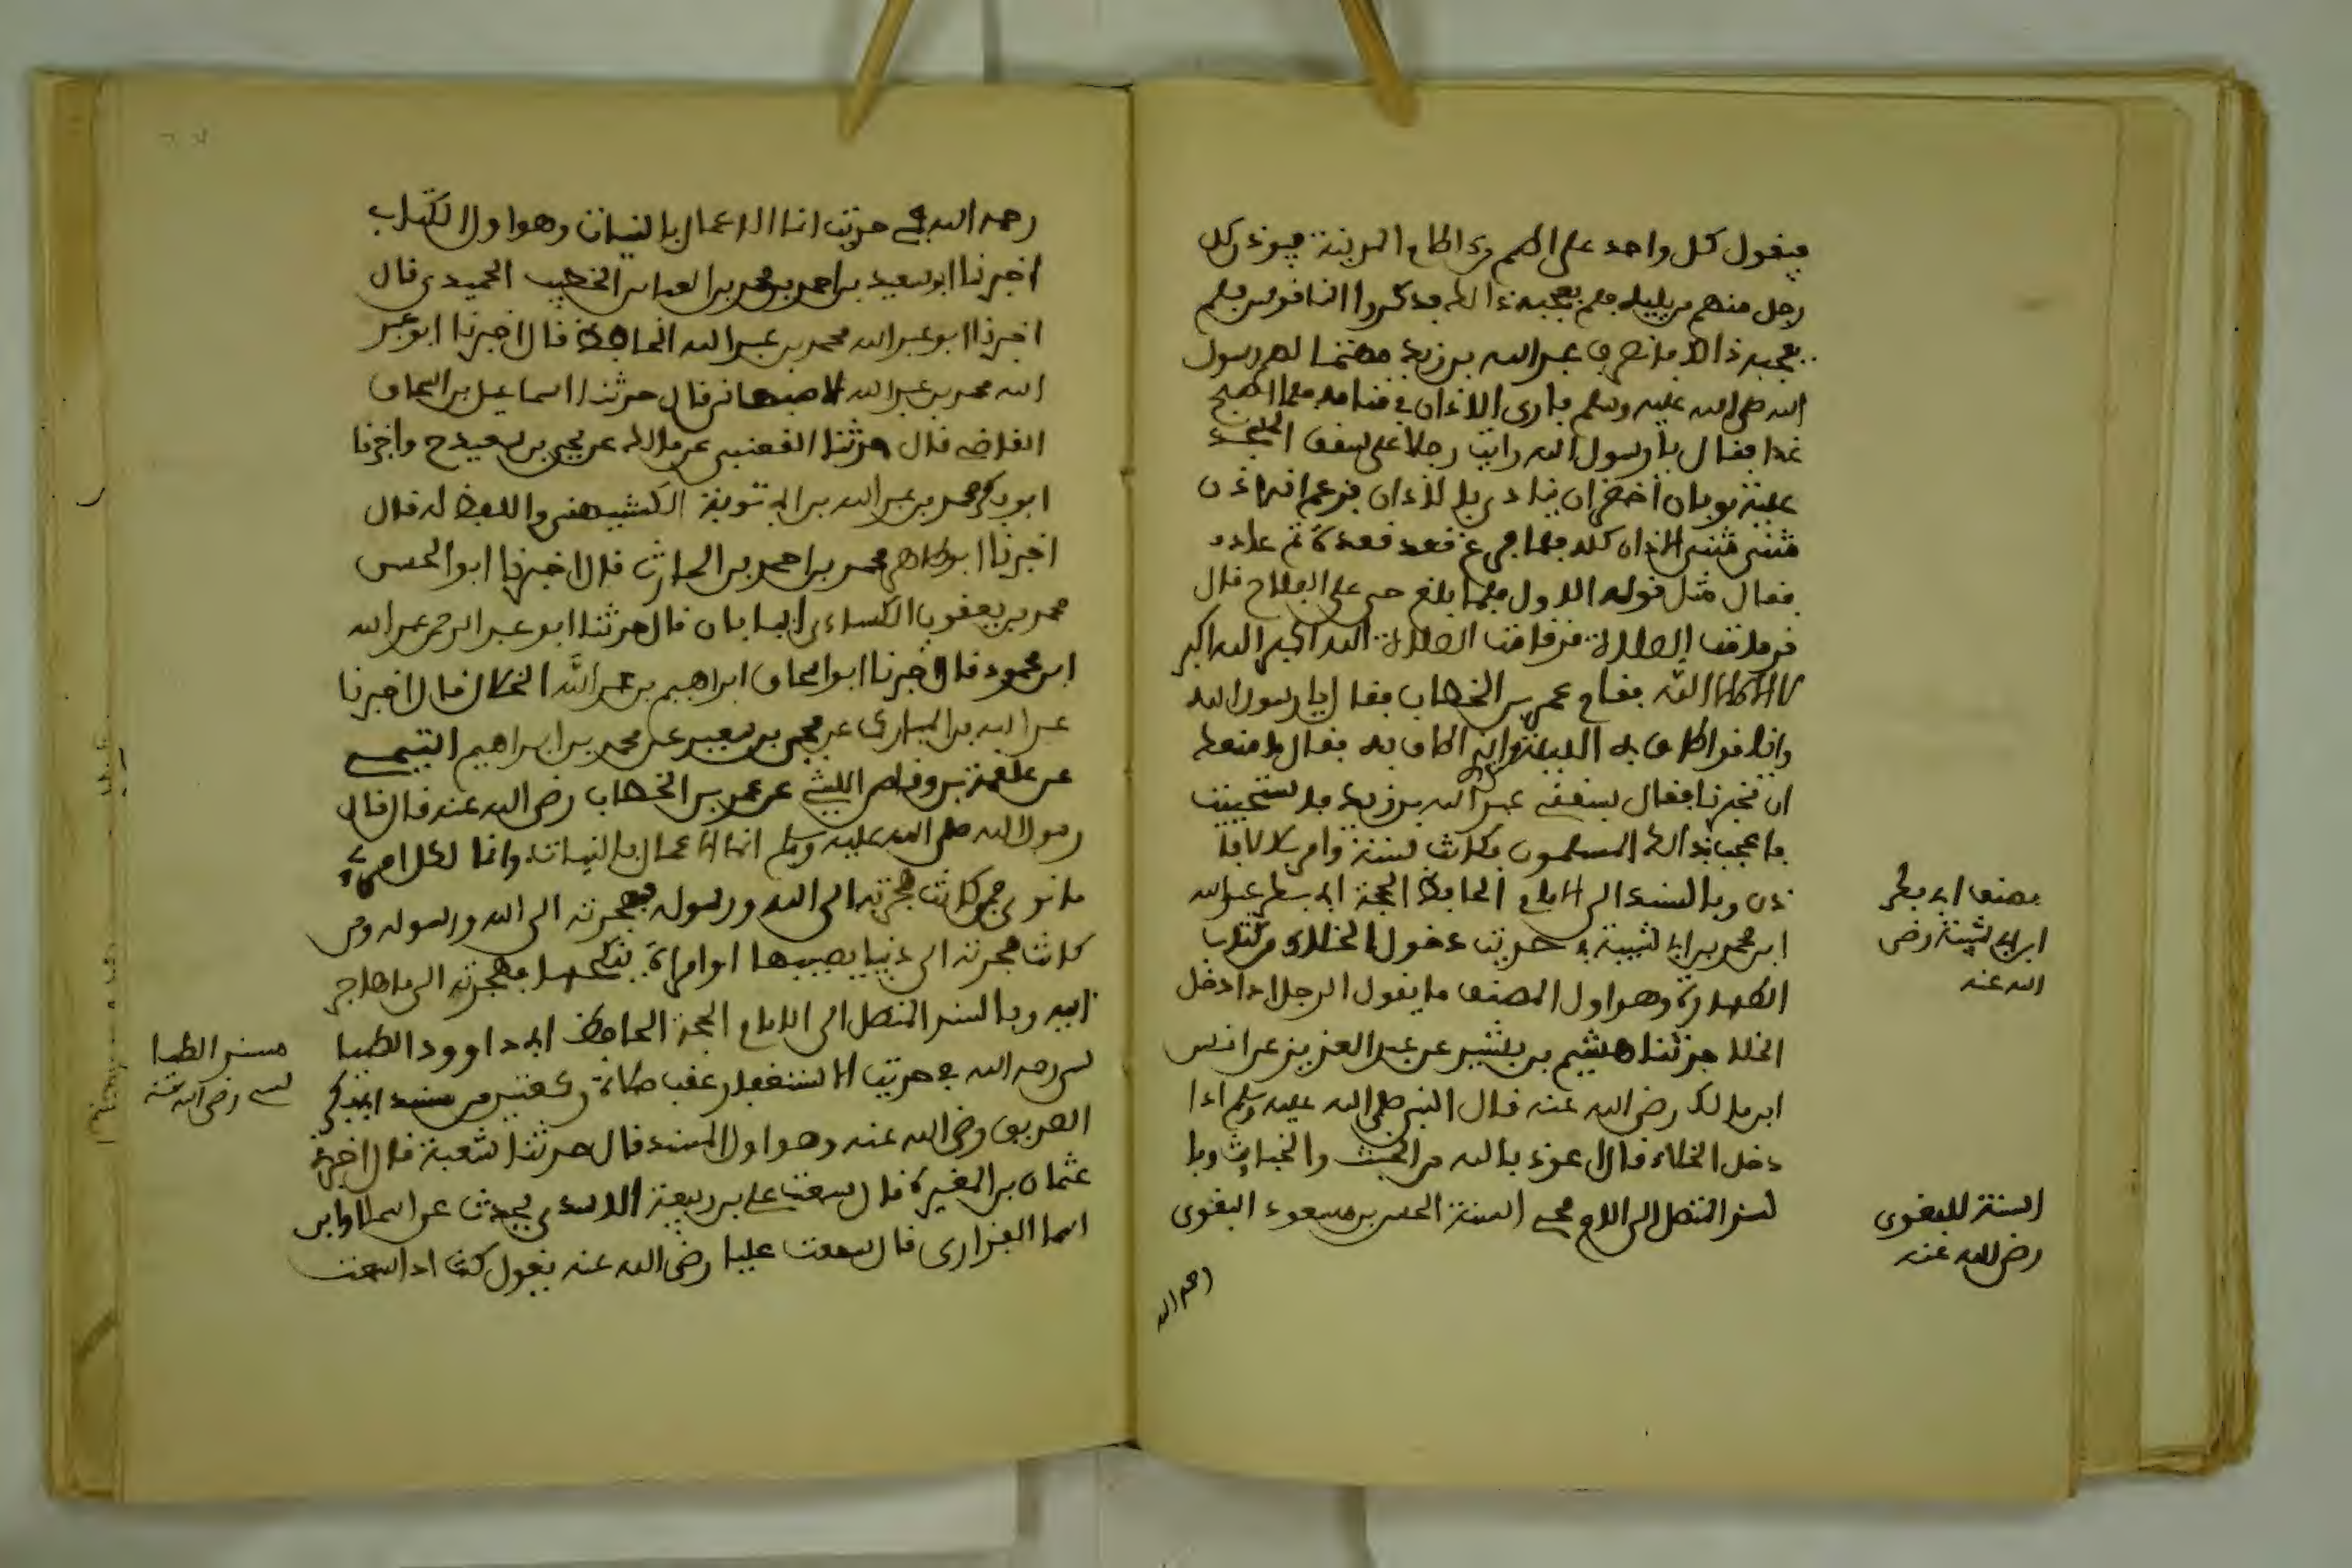 فيقول كل واحد على اطم من اطام المدينة فيوذن كل
رجل منهم من يليه فلم يعجبه ذالك فذكروا الناقوس فلم
يعجبه ذالك فانصرف عبد الله بن زيد مهتما لهم رسول
الله صلى الله عليه وسلم فارى الاذان في منامه فلما اصبح
غدا فقال يا رسول الله رايت رجلا على سقف المسجد
عليه ثوبان اخضران ينادي بالاذان فزعم انه اذن
مثنى مثنى الاذان كله فلما فرغ قعد قعدة ثم عاد
فقال مثل قوله الاول فلما بلغ حي على الفلاح قال
قد قامت الصلاة قد قامت الصلاة الله اكبر الله اكبر
لا اله الا الله فقام عمر بن الخطاب فقال يا رسول الله
وانا قد اطاف بي الليلة الذي اطاف به فقال ما منعك
ان تخبرنا فقال سبقني عبد الله بن زيد فاستحييت
فاعجب بذالك المسلمون فكانت سنة وامر بلالا فا
ذن وبالسند الى الامام الحافظ الحجة ابي بكر عبد الله
ابن محمد بن ابي شيبة في حديث دخول الخلاء من كتاب
الطهارة وهو اول المصنف ما يقول الرجل اذا دخل
الخلا حدثنا هشيم بن بشير عن عبد العزيز عن انس
ابن مالك رضي الله عنه قال النبي صلى الله عليه وسلم اذا
دخل الخلاء قال اعوذ بالله من الخبث والخبائث وبا
لسند المتصل الى الامام محيي السنة الحسين بن مسعود البغوي
رحمه الله
مصنف ابي بكر
ابن ابي شيبة رضي
الله عنه
السنة للبغوي
رضي الله عنه
رحمه الله في حديث انما الاعمال بالنيات وهو اول الكتاب
اخبرنا ابو سعيد بن احمد بن محمد بن العباس الخطيب الحميدي قال
اخبرنا ابو عبد الله محمد بن عبد الله الحافظ قال اخبرنا ابو عبد
الله محمد بن عبد الله الاصبهاني قال حدثنا اسماعيل بن اسحاق
القاضي قال حدثنا القعنبي عن مالك عن يحيى بن سعيد ح واخبرنا
ابو بكر محمد بن عبد الله بن ابي توبة الكشميهني واللفظ له قال
اخبرنا ابو طاهر محمد بن احمد بن الحارث قال اخبرنا ابو الحسن
محمد بن يعقوب الكساءي انبابان قال حدثنا ابو عبد الرحمن عبد الله
ابن محمود قال اخبرنا ابو اسحاق ابراهيم بن عبد الله الخلال قال اخبرنا
عبد الله بن المبارك عن يحيى بن سعيد عن محمد بن ابراهيم التيمي
عن علقمة بن وقاص الليثي عن عمر بن الخطاب رضي الله عنه قال قال
رسول الله صلى الله عليه وسلم انما الاعمال بالنيات وانما لكل امرئ
ما نوى فمن كانت هجرته الى الله ورسوله فهجرته الى الله ورسوله ومن
كانت هجرته الى دنيا يصيبها او امراة ينكحها فهجرته الى ما هاجر
اليه وبالسند المتصل الى الامام الحجة الحافظ ابي داوود الطيا
لسي رحمه الله في حديث الاستغفار عقب صلاة ركعتين من مسند ابي بكر
الصديق رضي الله عنه وهو اول المسند قال حدثنا شعبة قال اخبرني
عثمان بن المغيرة قال سمعت علي بن ربيعة الاسدي يحدث عن اسما او ابن
اسما الفزاري قال سمعت عليا رضي الله عنه يقول كنت اذا سمعت
مسند الطيا
لسي رضي الله عنه